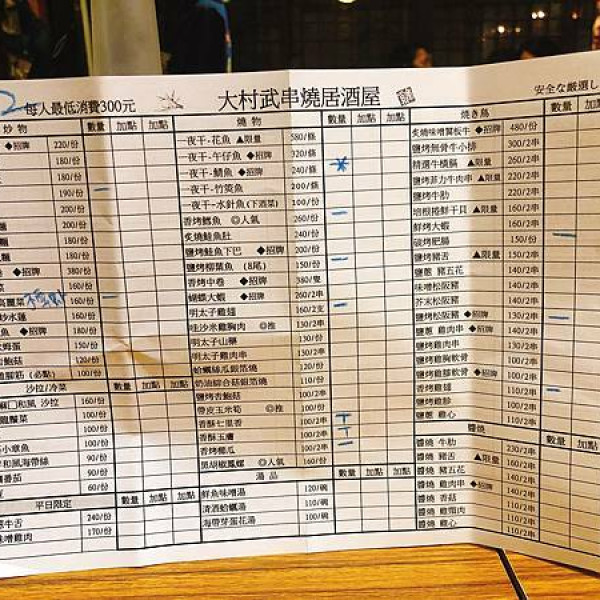 2 每人最低消費300元
大村武串燒居酒屋
安全な厳選し
炒物 數量 加點 加點
◆招牌 220/份
180/份
180/份
190/份
200/份
200/份
180/份
180/份
◆招牌 380/份
高麗菜 160/份
炒水蓮 160/份
◆招牌 180/份
150/份
120/份
(必點) 100/份
沙拉/冷菜 數量 加點 加點
和風 沙拉 160/份
100/份
100/份
小章魚 90/份
和風海帶絲 90/份
番茄 80/份
60/份
平日限定 數量 加點 加點
牛舌 240/份
味噌雞肉 170/份
燒物 數量 加點 加點
一夜干-花魚 ▲限量 580/條
一夜干-午仔魚 ◆招牌 320/條
一夜干-鯖魚 ◆招牌 240/條
一夜干-竹筴魚 200/條
一夜干-水針魚(下酒菜) 100/份
香烤鱈魚 ◎人氣 260/份
炙燒鮭魚肚 240/份
鹽烤鮭魚下巴 ◆招牌 200/份
鹽烤柳葉魚 (8尾) 150/份
香烤中卷 ◆招牌 380/隻
蝴蝶大蝦 ◆招牌 260/2串
明太子雞翅 160/2支
哇沙米雞胸肉 ◎推 130/2串
明太子山藥 130/份
明太子雞肉串 130/2串
蛤蠣絲瓜銀箔燒 130/份
奶油綜合菇銀箔燒 110/份
鹽烤杏鮑菇 100/2串
帶皮玉米筍 ◎推 100/份
香酥七里香 100/2串
香酥玉膚 100/2串
香烤櫛瓜 100/2串
黑胡椒鳳螺 ◎人氣 160/份
湯品 數量 加點 加點
鮮魚味噌湯 120/碗
清酒蛤蠣湯 150/碗
海帶芽蛋花湯 100/碗
燒き鳥 數量 加點
炙燒味噌翼板牛 ◆招牌 480/份
鹽烤無骨牛小排 300/2串
精選牛橫膈 ▲限量 260/2串
鹽烤菲力牛肉串 ▲限量 220/2串
鹽烤牛肋 220/2串
培根捲鮮干貝 ▲限量 160/2串
鮮烤大蝦 160/2串
碳烤肥腸 150/份
鹽烤豬舌 ▲限量 150/2串
鹽蔥 豬五花 140/2串
味噌松阪豬 140/2串
芥末松阪豬 140/2串
鹽烤松阪豬 ◆招牌 130/2串
鹽蔥 雞肉串 ◆招牌 140/2串
鹽烤雞肉串 130/2串
鹽烤雞胸軟骨 100/2串
鹽烤雞膝軟骨 ◆招牌 100/2串
香烤雞翅 110/2串
鹽烤雞胗 100/2串
鹽蔥 雞心 110/2串
醬燒 數量 加點
醬燒 牛肋 230/2串
醬燒 豬舌 ▲限量 160/2串
醬燒 豬五花 140/2串
醬燒 雞肉串 ◆招牌 140/2串
醬燒 香菇 110/2串
醬燒 雞頸肉 110/2串
醬燒 雞心 110/2串